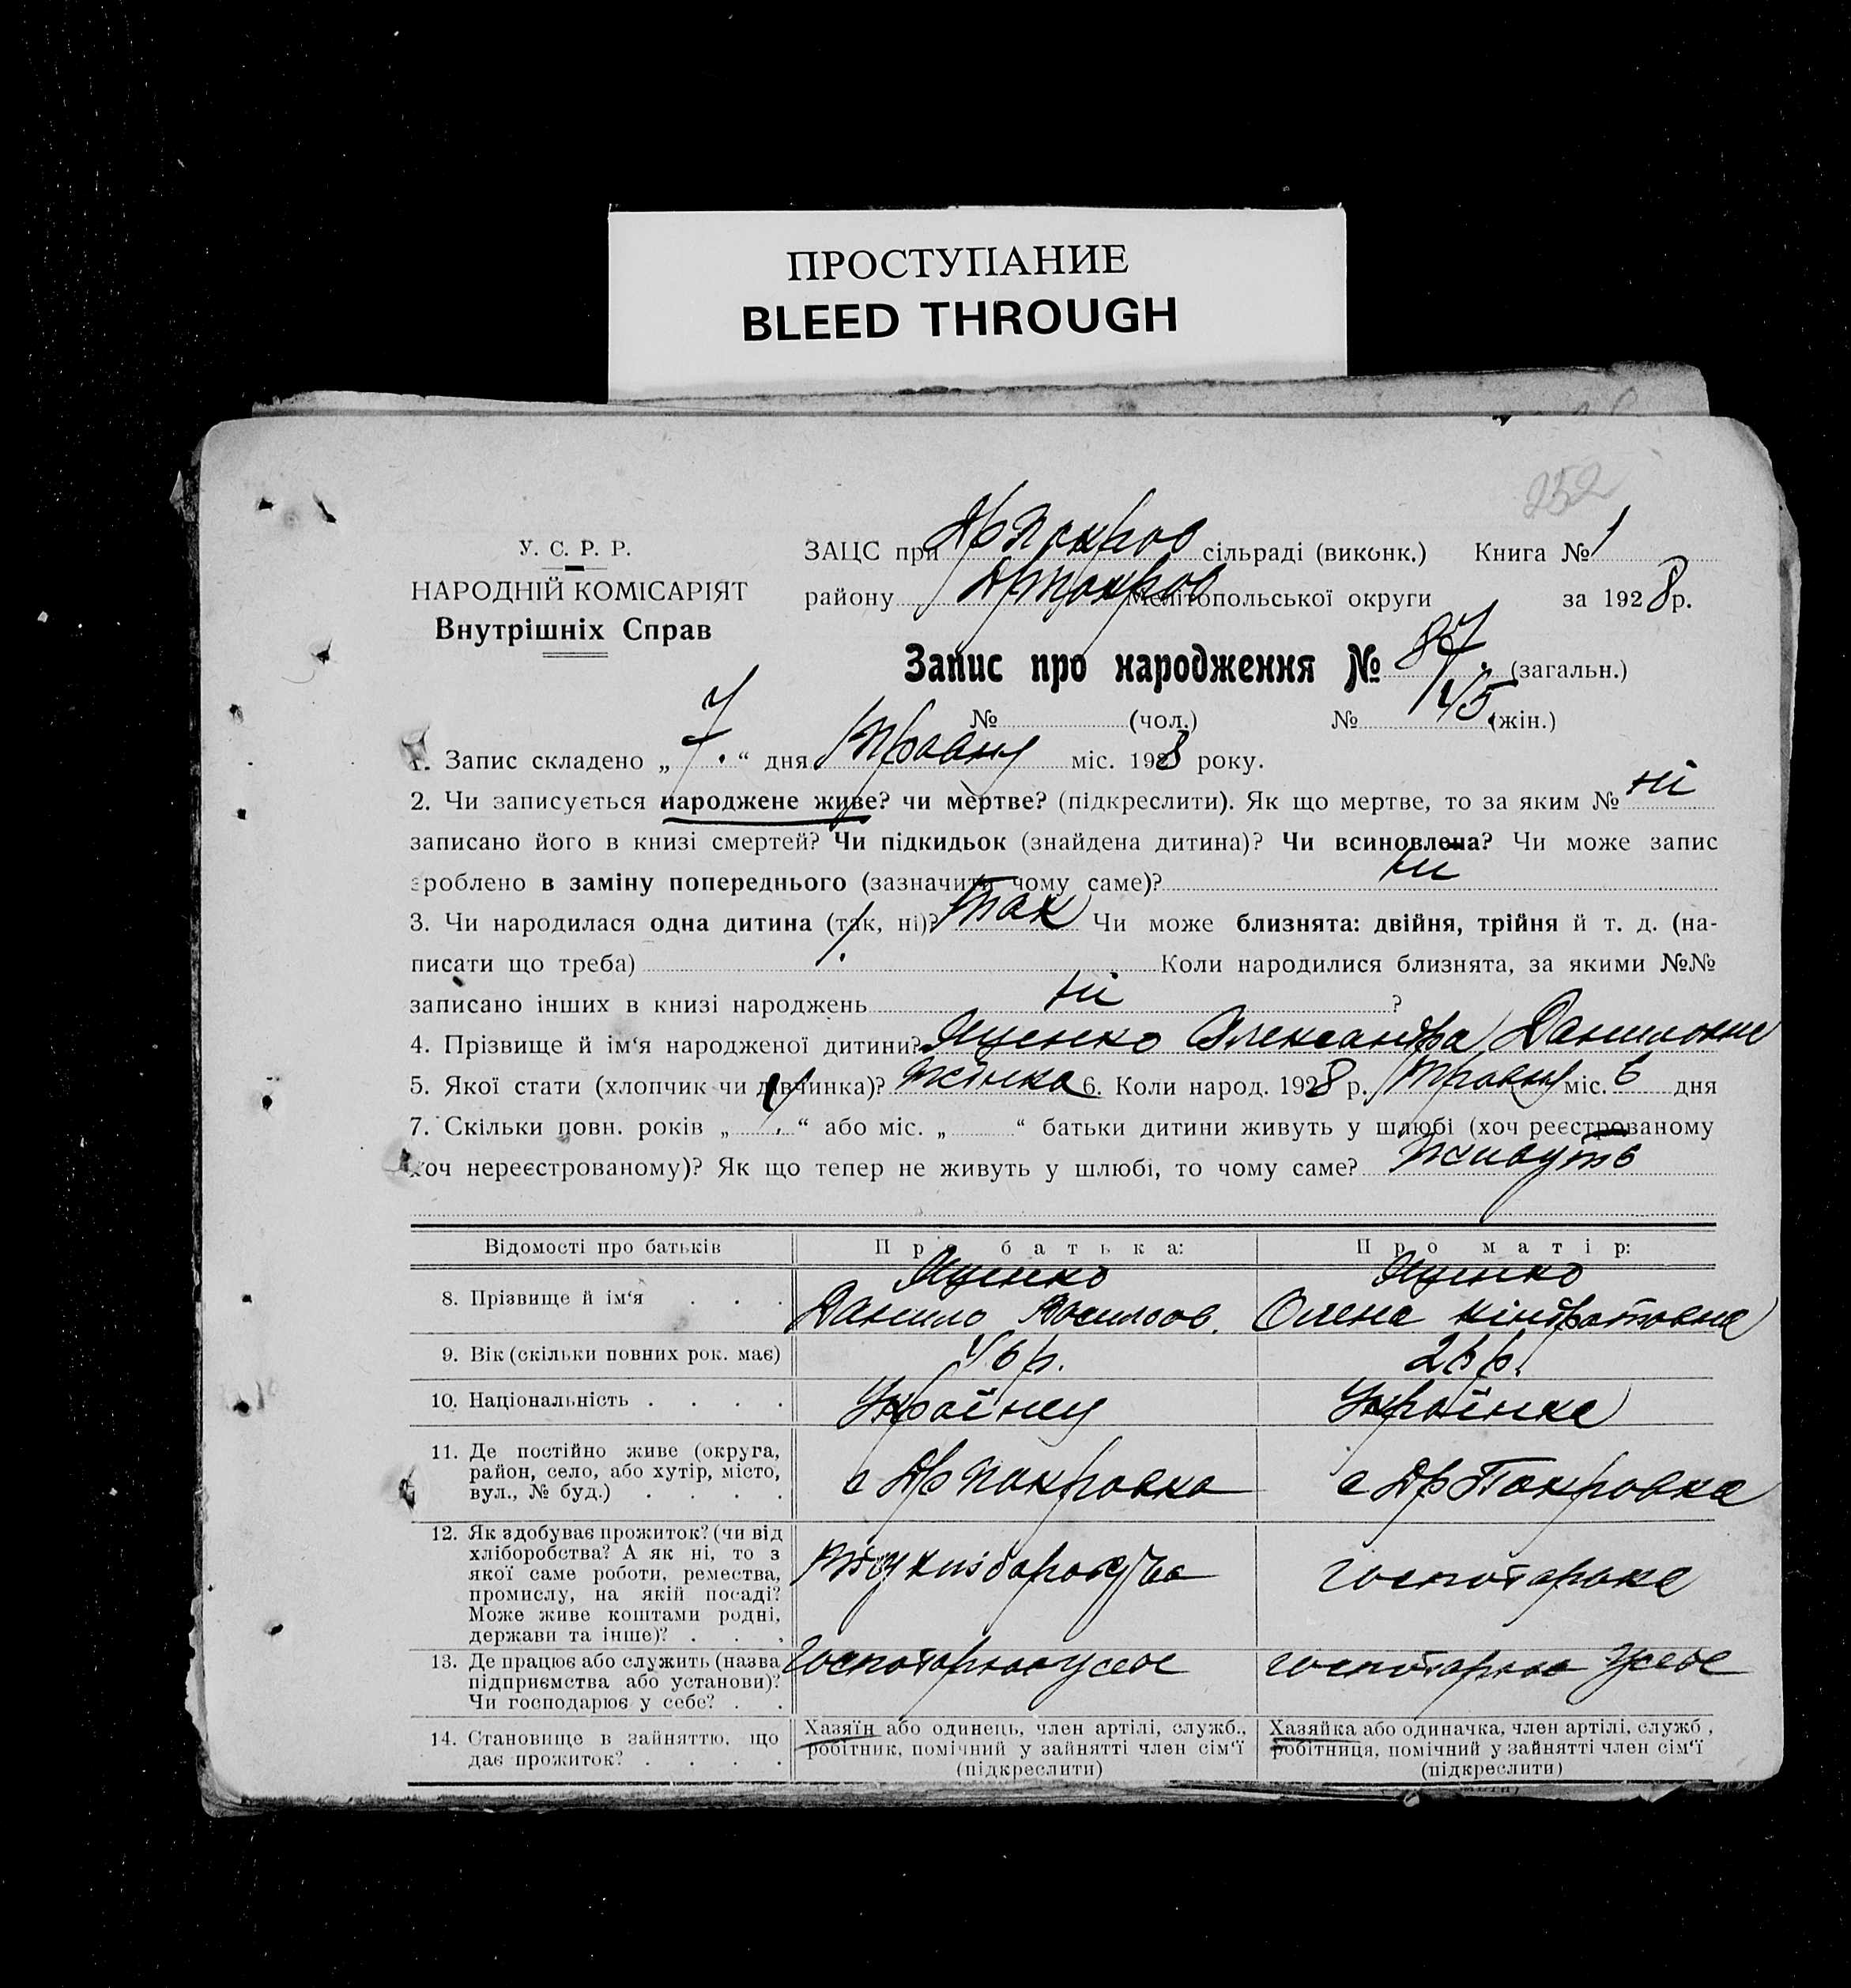 ПРОСТУПАНИЕ
BLEED THROUGH
252
У. С. Р. Р.
НАРОДНІЙ КОМІСАРІЯТ
Внутрішніх Справ
ЗАЦС при Др Покров сільраді (виконк.) Книга № 1
району Др Покров Мелітопольської округи за 1928 р.
Запис про народження № 87. (загальн.)
№ (чол.) № 45. (жін.)
1. Запис складено „7.“ дня Травня міс. 1928 року.
2. Чи записується народжене живе? чи мертве? (підкреслити). Як що мертве, то за яким № ні
записано його в книзі смертей? Чи підкидьок (знайдена дитина)? Чи всиновлена? Чи може запис
зроблено в заміну попереднього (зазначити чому саме)? ни
3. Чи народилася одна дитина (так, ні)? Так Чи може близнята: двійня, трійня й т. д. (на-
писати що треба) Коли народилися близнята, за якими №№
записано інших в книзі народжень ні ?
4. Прізвище й ім‘я народженої дитини? Яценко Олександра Даниловна
5. Якої стати (хлопчик чи дівчинка)? жінка 6. Коли народ. 1928 р. Травня міс. 6 дня
7. Скільки повн. років „ “ або міс. „ “ батьки дитини живуть у шлюбі (хоч реєстрованому
хоч нереєстрованому)? Як що тепер не живуть у шлюбі, то чому саме? живуть
Відомості про батьків Про батька: Про матір:
8. Прізвище й ім‘я Яценко Данило Васильов. Яценко Олена Кіндратовна
9. Вік (скільки повних рок. має) 46 р. 26 р.
10. Національність Українец Українка
11. Де постійно живе (округа, район, село, або хутір, місто, вул., № буд.) с Др Покровка с Др Покровка
12. Як здобуває прожиток? (чи від
хліборобства? А як ні, то з
якої саме роботи, ремества,
промислу, на якій посаді?
Може живе коштами родні,
держави та інше)?
13. Де працює або служить (назва
підприємства або установи)?
Чи господарює у себе?
14. Становище в зайняттю, що
дає прожиток?
Хазяїн або одинець, член артілі, служб.,
робітник, помічний у зайнятті член сім‘ї
(підкреслити)
Хазяйка або одиначка, член артілі, служб,
робітниця, помічний у зайнятті член сім‘ї
(підкреслити)